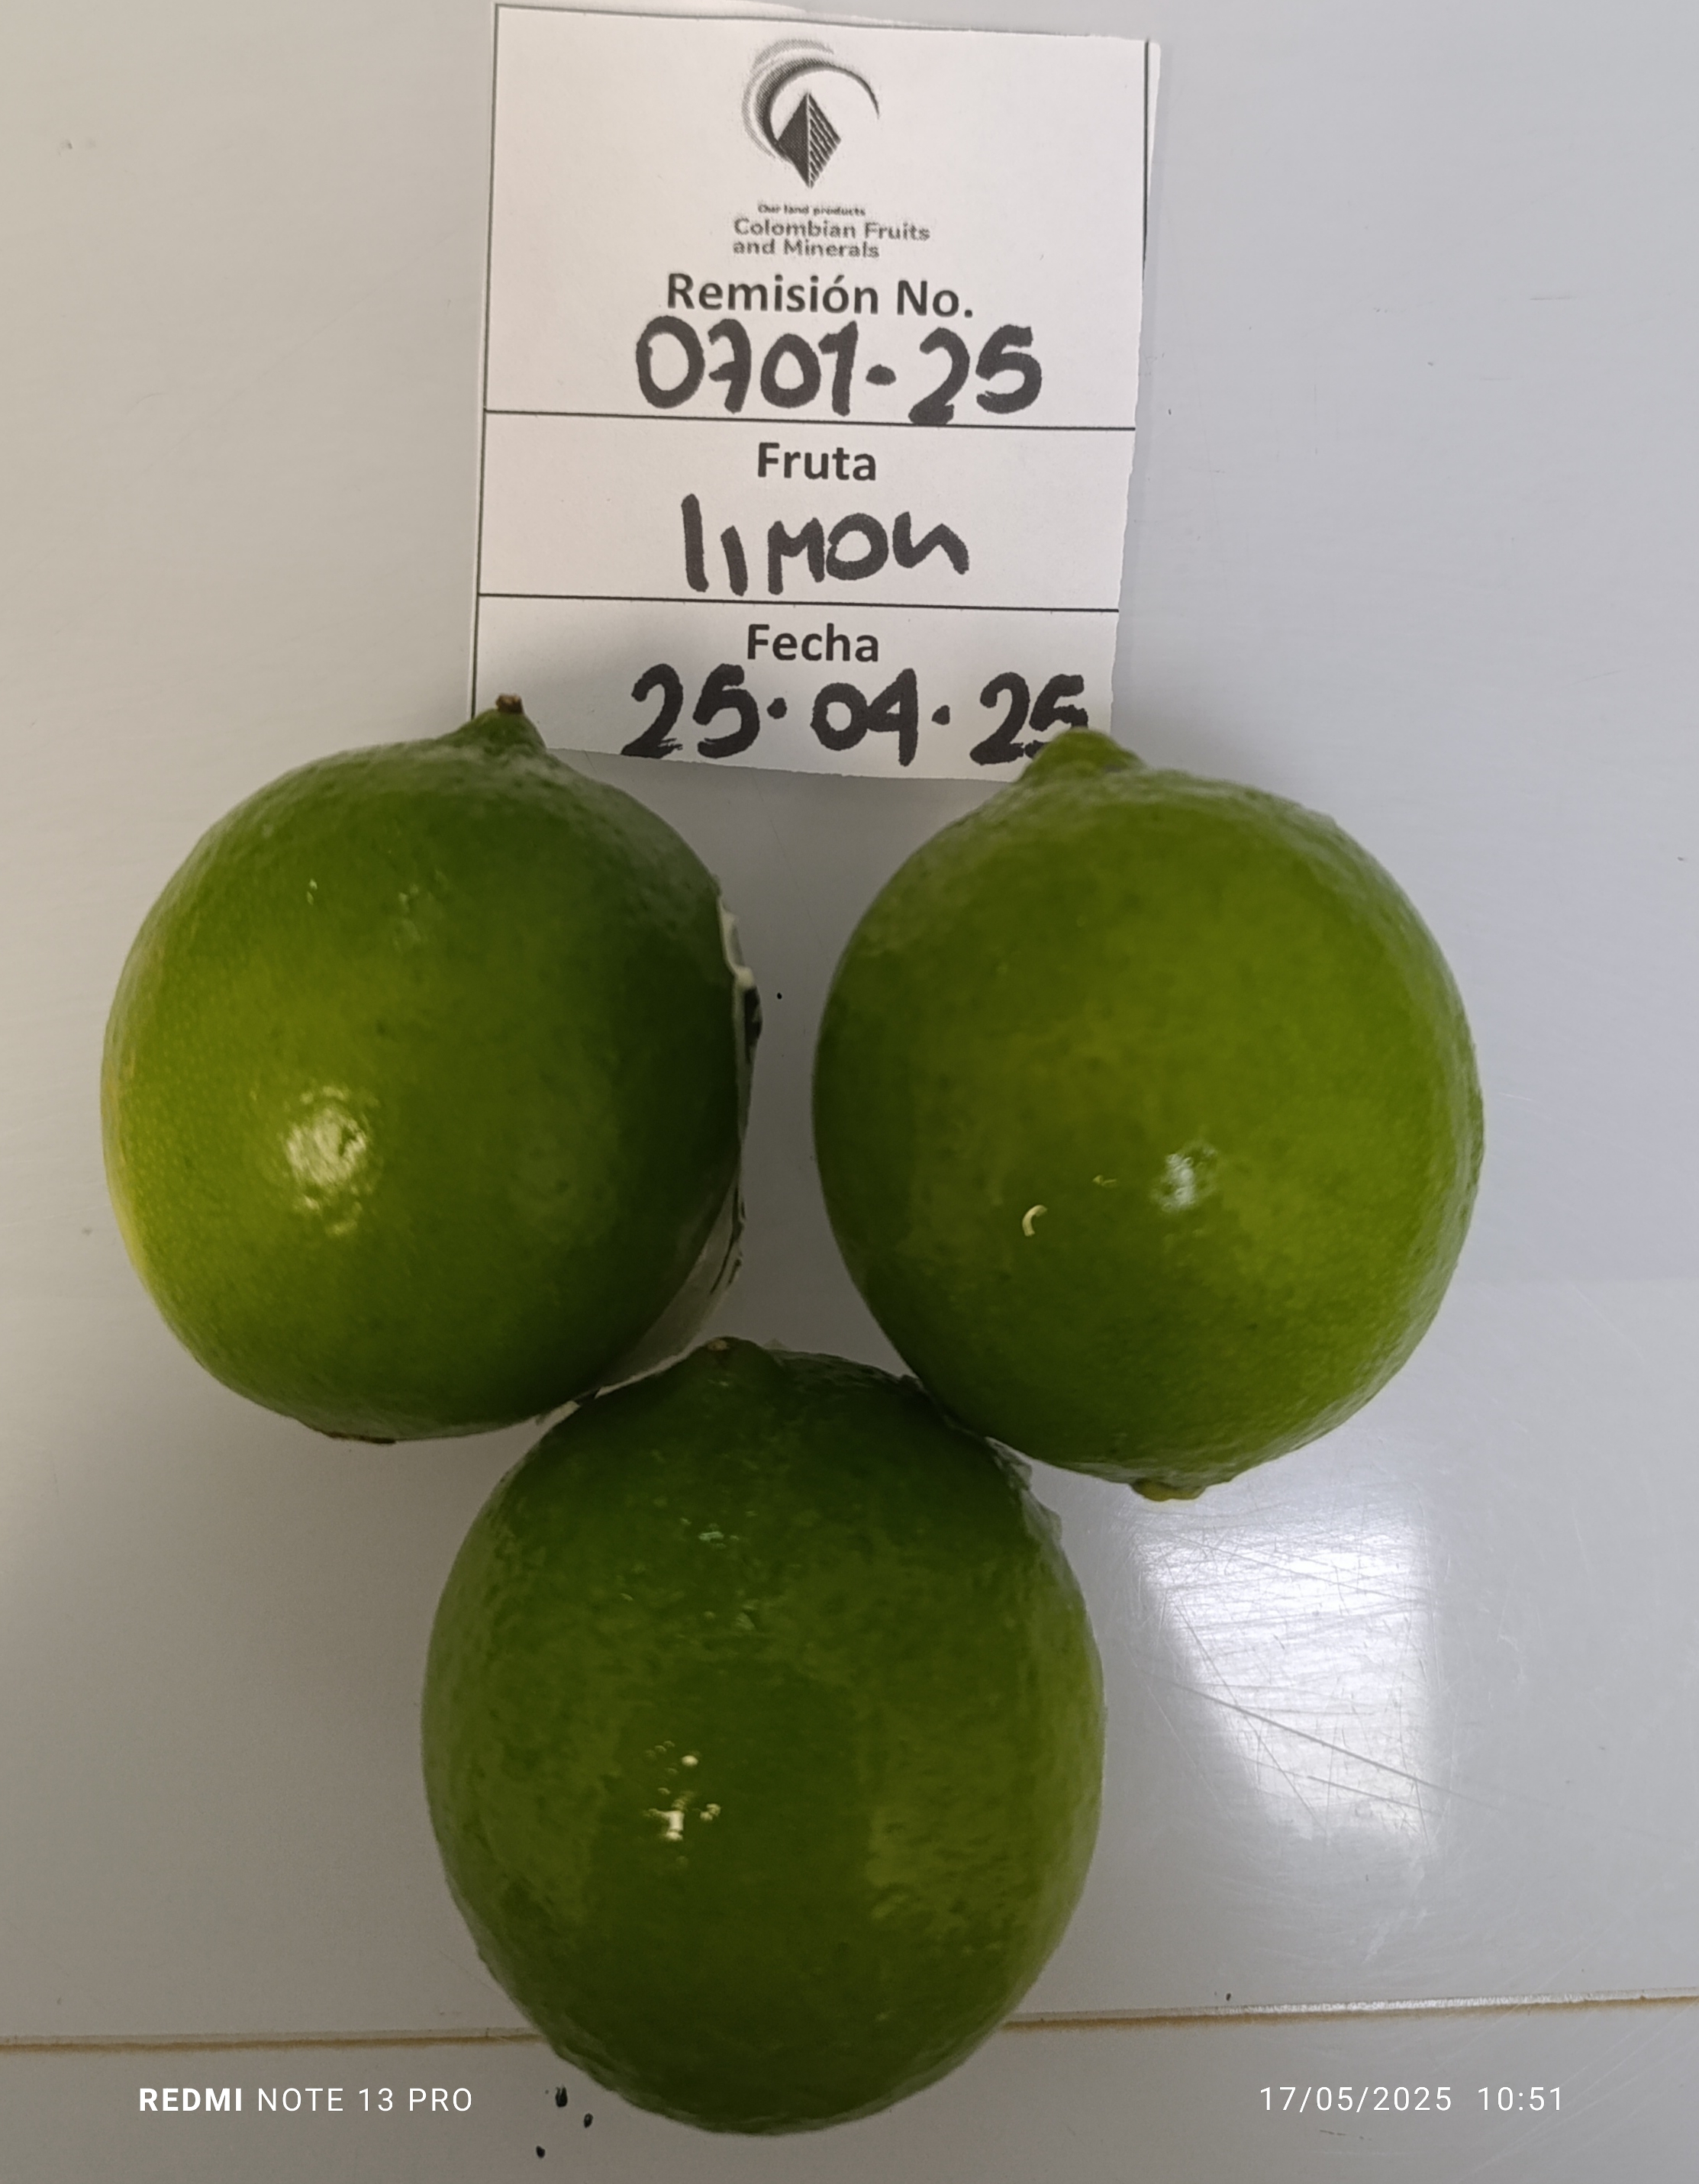 Our land products
Colombian Fruits
and Minerals
Remisión No.
0701-25
Fruta
limon
Fecha
25·04·25
REDMI NOTE 13 PRO
17/05/2025 10:51